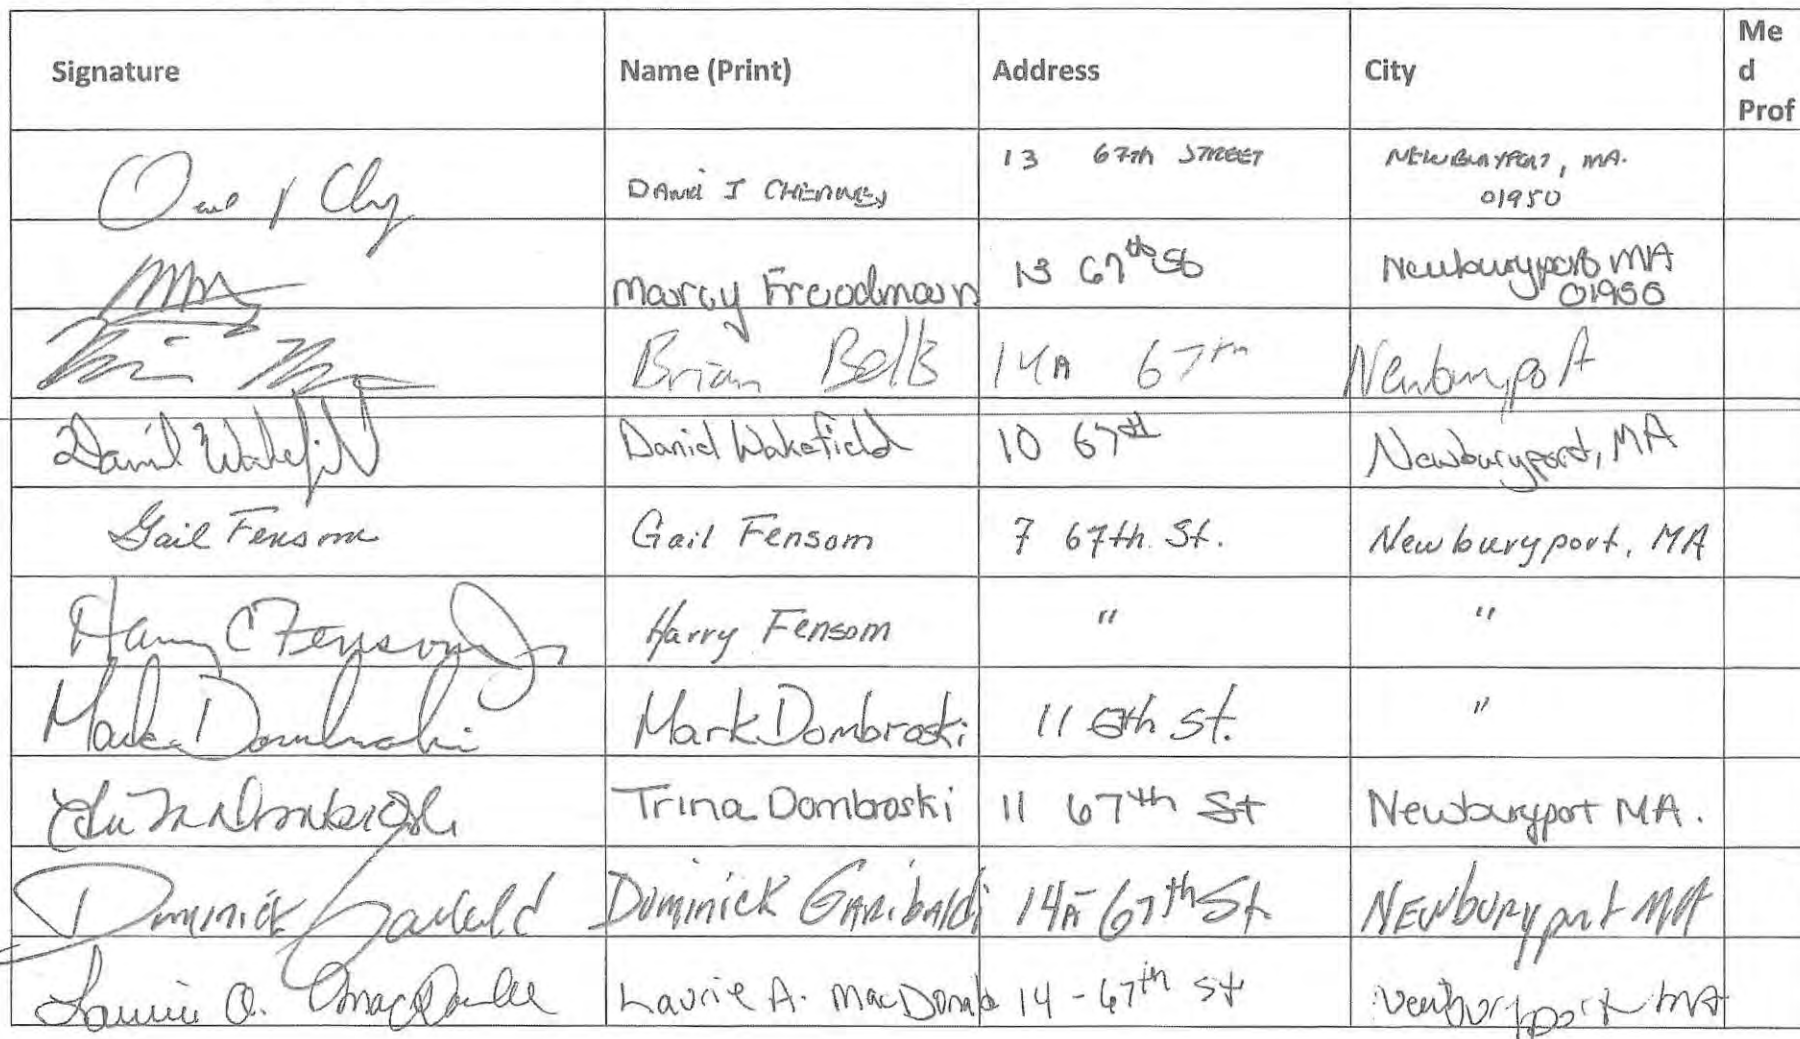 Signature Name (Print) Address City Me
d
Prof
13 67th STREET NEWBURYPORT, MA.
DANIEL J CHENNEY 01950
Marcy Freedman 13 67th St Newburyport MA
01950
Brian Belb 14A 67th Newburyport
Daniel Wakefield Daniel Wakefield 10 67th Newburyport, MA
Gail Fensom Gail Fensom 7 67th St. Newburyport, MA
Harry C Fensom Jr Harry Fensom " "
Mark Dombroski Mark Dombroski 11 67th St. "
Dombroski Trina Dombroski 11 67th St Newburyport MA.
Dominick Garibaldi Dominick GARIBALDi 14A-67th St. NEWburyport MA
Laurie A. MacDonald Laurie A. MacDonald 14-67th St Newburyport MA